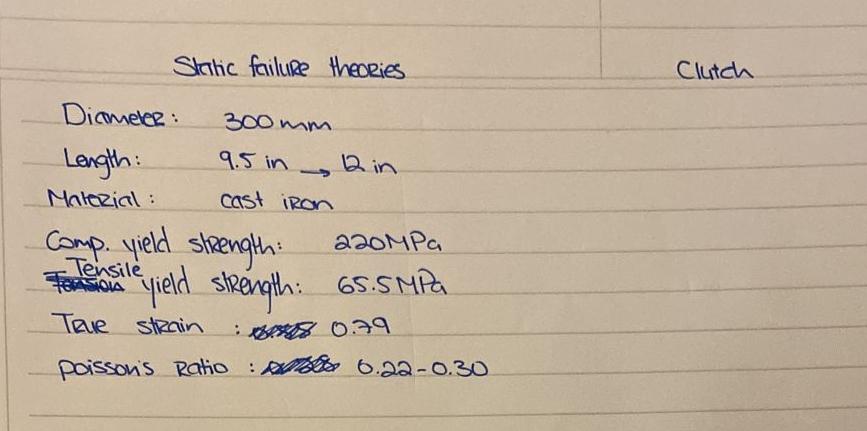 Static failure theories
Clutch
Diameter: 300 mm
Length: 9.5 in → 12 in
Material: cast iron
Comp. yield strength: 220MPa
Tensile
Tension yield strength: 65.5MPa
True strain : 0.79
Poisson's Ratio : 0.22-0.30